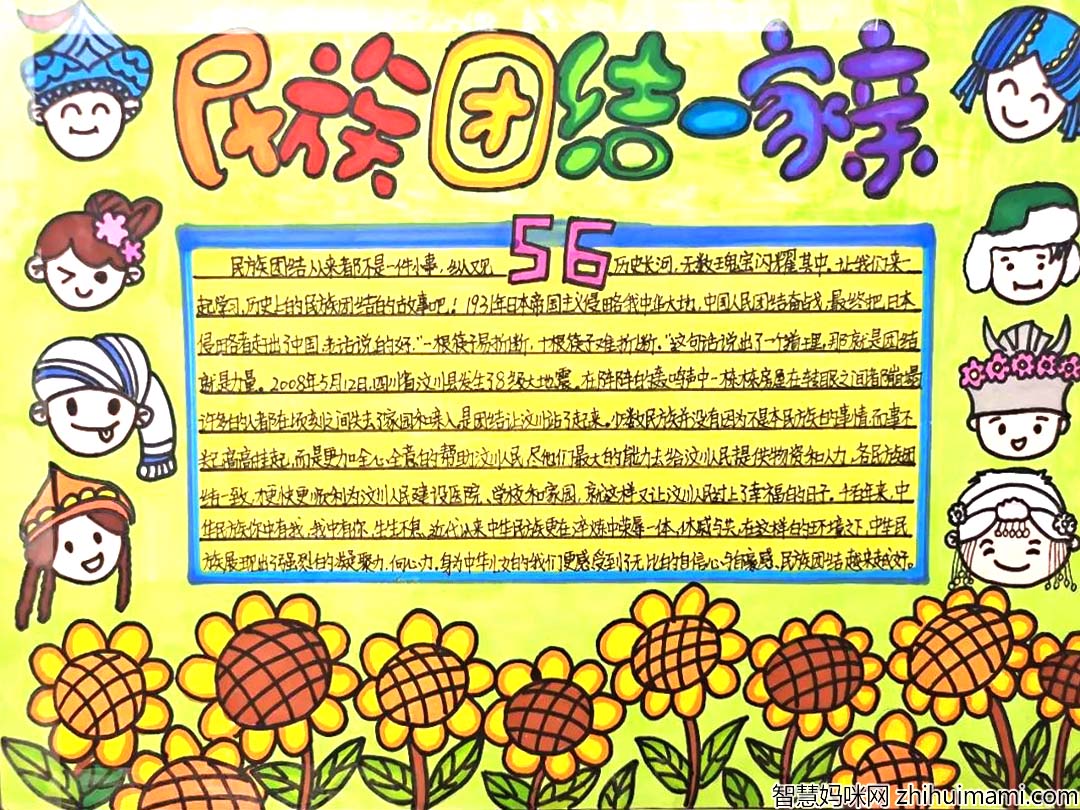 民族团结一家亲
56
民族团结从来都不是一件小事，纵观历史长河，无数瑰宝闪耀其中，让我们来一
起学习历史上的民族团结的故事吧！1931年日本帝国主义侵略我中华大地，中国人民团结奋战，最终把日本
侵略者赶出了中国，老话说的好："一根筷子易折断，十根筷子难折断。"这句话说出了一个道理，那就是团结
就是力量。2008年5月12日，四川省汶川县发生了8级大地震。在阵阵的轰鸣声中一栋栋房屋在转眼之间都
许多的人都在顷刻之间失去了家园和亲人，是团结让汶川站了起来。少数民族并没有因为不是本民族的事情而事不
关己高高挂起，而是更加全心全意的帮助汶川人民，尽他们最大的能力去给汶川人民提供物资和人力，各民族团
结一致，才更快更顺利为汶川人民建设医院、学校和家园，就这样又让汶川人民过上了幸福的日子。十五年来，中
华民族你中有我，我中有你，生生不息，近代以来中华民族更在淬炼中荣辱一体，休戚与共，在这样的环境之下，中华民
族展现出了强烈的凝聚力，向心力，身为中华儿女的我们更感受到了无比的自信心与自豪感，民族团结越来越好。
智慧妈咪网 zhihuimami.com